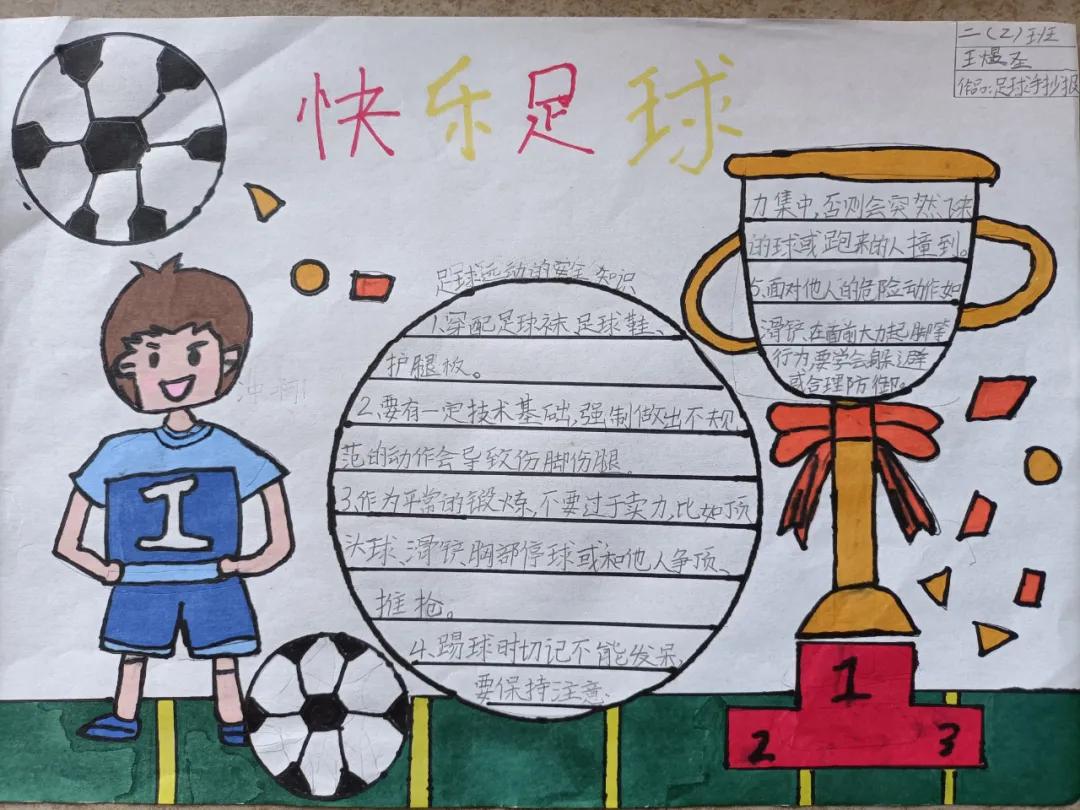 二(2)班
王煜圣
作品:足球手抄报
快乐足球
足球运动的安全知识
1.穿配足球袜、足球鞋、
护腿板。
2.要有一定技术基础,强制做出不规
范的动作会导致伤脚伤腿。
3.作为平常的锻炼,不要过于卖力,比如顶
头球、滑铲、胸部停球或和他人争顶、
推抢。
4.踢球时切记不能发呆,
要保持注意
力集中,否则会突然飞来
的球或跑来的人撞到。
5.面对他人的危险动作如
滑铲、在面前大力起脚等
行为要学会躲避
或合理防御。
冲啊!
1
1
2
3